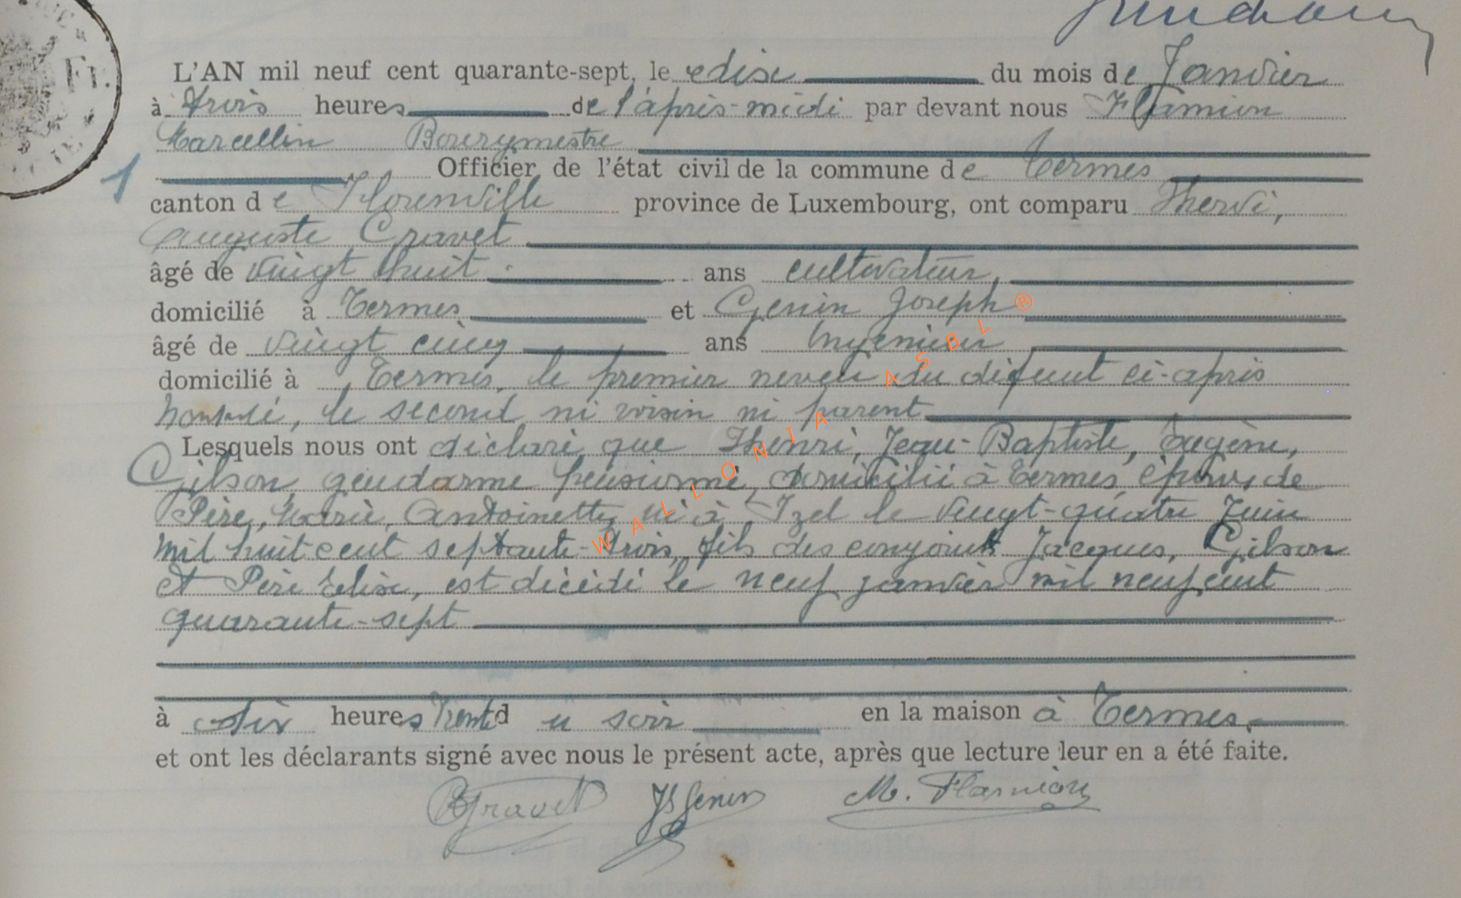 L'AN mil neuf cent quarante-sept, le dix du mois de Janvier
à trois heures de l'après-midi par devant nous Flamion
Marcellin Bourgmestre
1 Officier de l'état civil de la commune de Termes
canton de Florenville province de Luxembourg, ont comparu
Auguste Gravet
âgé de vingt huit ans cultivateur
domicilié à Termes et Genin Joseph
âgé de vingt cinq ans Ingénieur
domicilié à Termes, le premier neveu du défunt ci-après
nommé, le second ni voisin ni parent
Lesquels nous ont déclaré que Henri, Jean-Baptiste, Eugène,
Gilson gendarme pensionné, domicilié à Termes, époux de
Père, Marie, Antoinette, né à Izel le vingt-quatre Juin
mil huit cent septante-trois, fils des conjoints Jacques, Gilson
et Père Elise, est décédé le neuf janvier mil neuf cent
quarante-sept
à dix heures trente du soir en la maison à Termes
et ont les déclarants signé avec nous le présent acte, après que lecture leur en a été faite.
Gravet Js Genin M. Flamion
WALLONIA ASBL ®